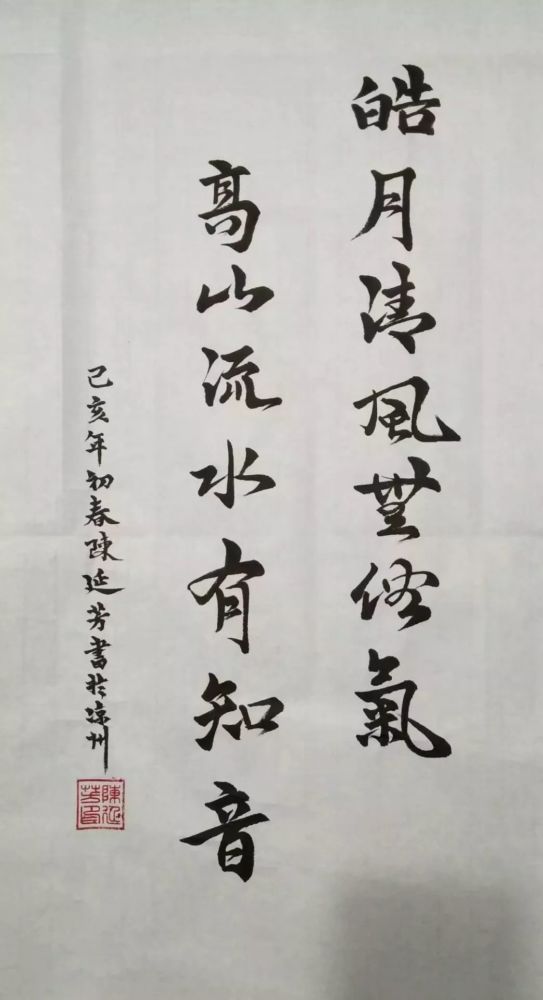 皓月清風無俗氣
高山流水有知音
己亥年初春陳延芳書於凉州
陳延芳印